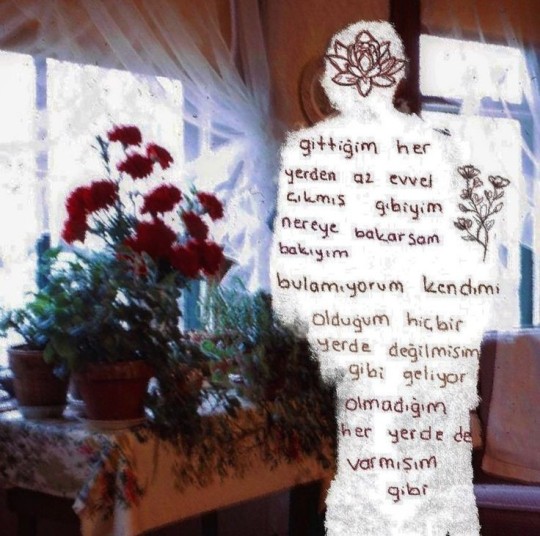 gittiğim her
yerden az evvel
çıkmış gibiyim
nereye bakarsam
bakıyım
bulamıyorum kendimi
olduğum hiçbir
yerde değilmişim
gibi geliyor
olmadığım
her yerde de
varmışım
gibi